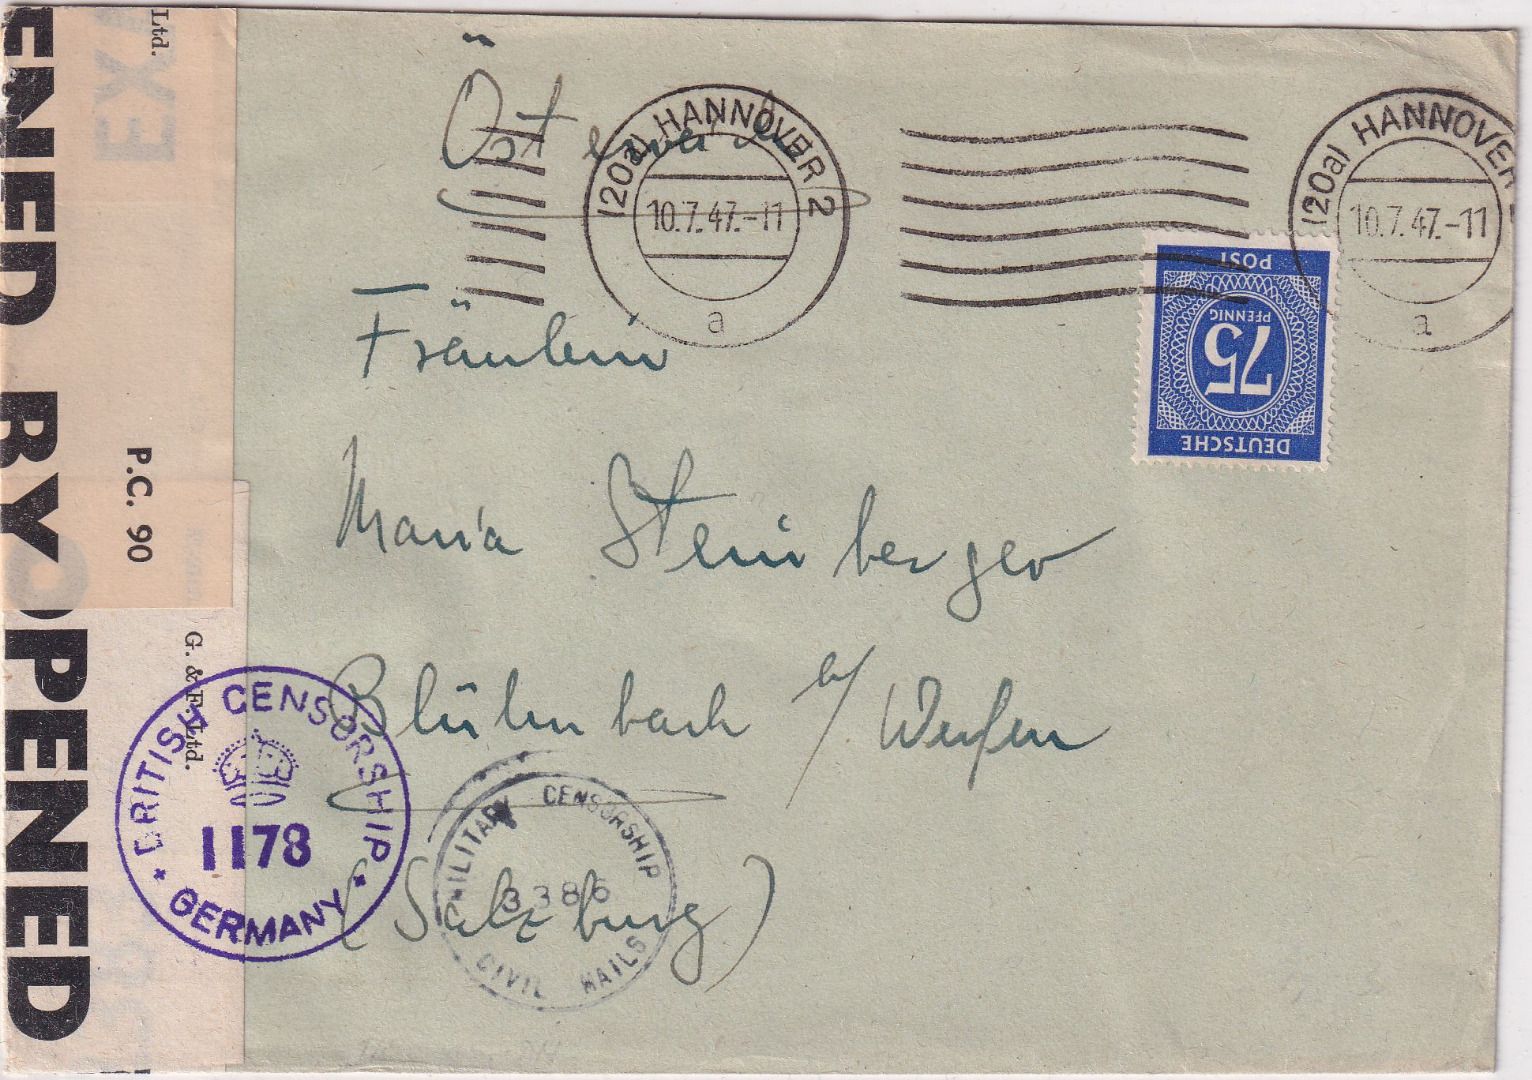 Österreich
(20a) HANNOVER 2
10.7.47.-11
a
(20a) HANNOVER
10.7.47.-11
a
DEUTSCHE
75
PFENNIG
POST
Fräulein
Maria Steinberger
Blühnbach b/ Werfen
(Salzburg)
ENED BY
OPENED
EX
Ltd.
P.C. 90
G. & F. Ltd.
BRITISH CENSORSHIP
1178
GERMANY
MILITARY CENSORSHIP
3386
CIVIL MAILS